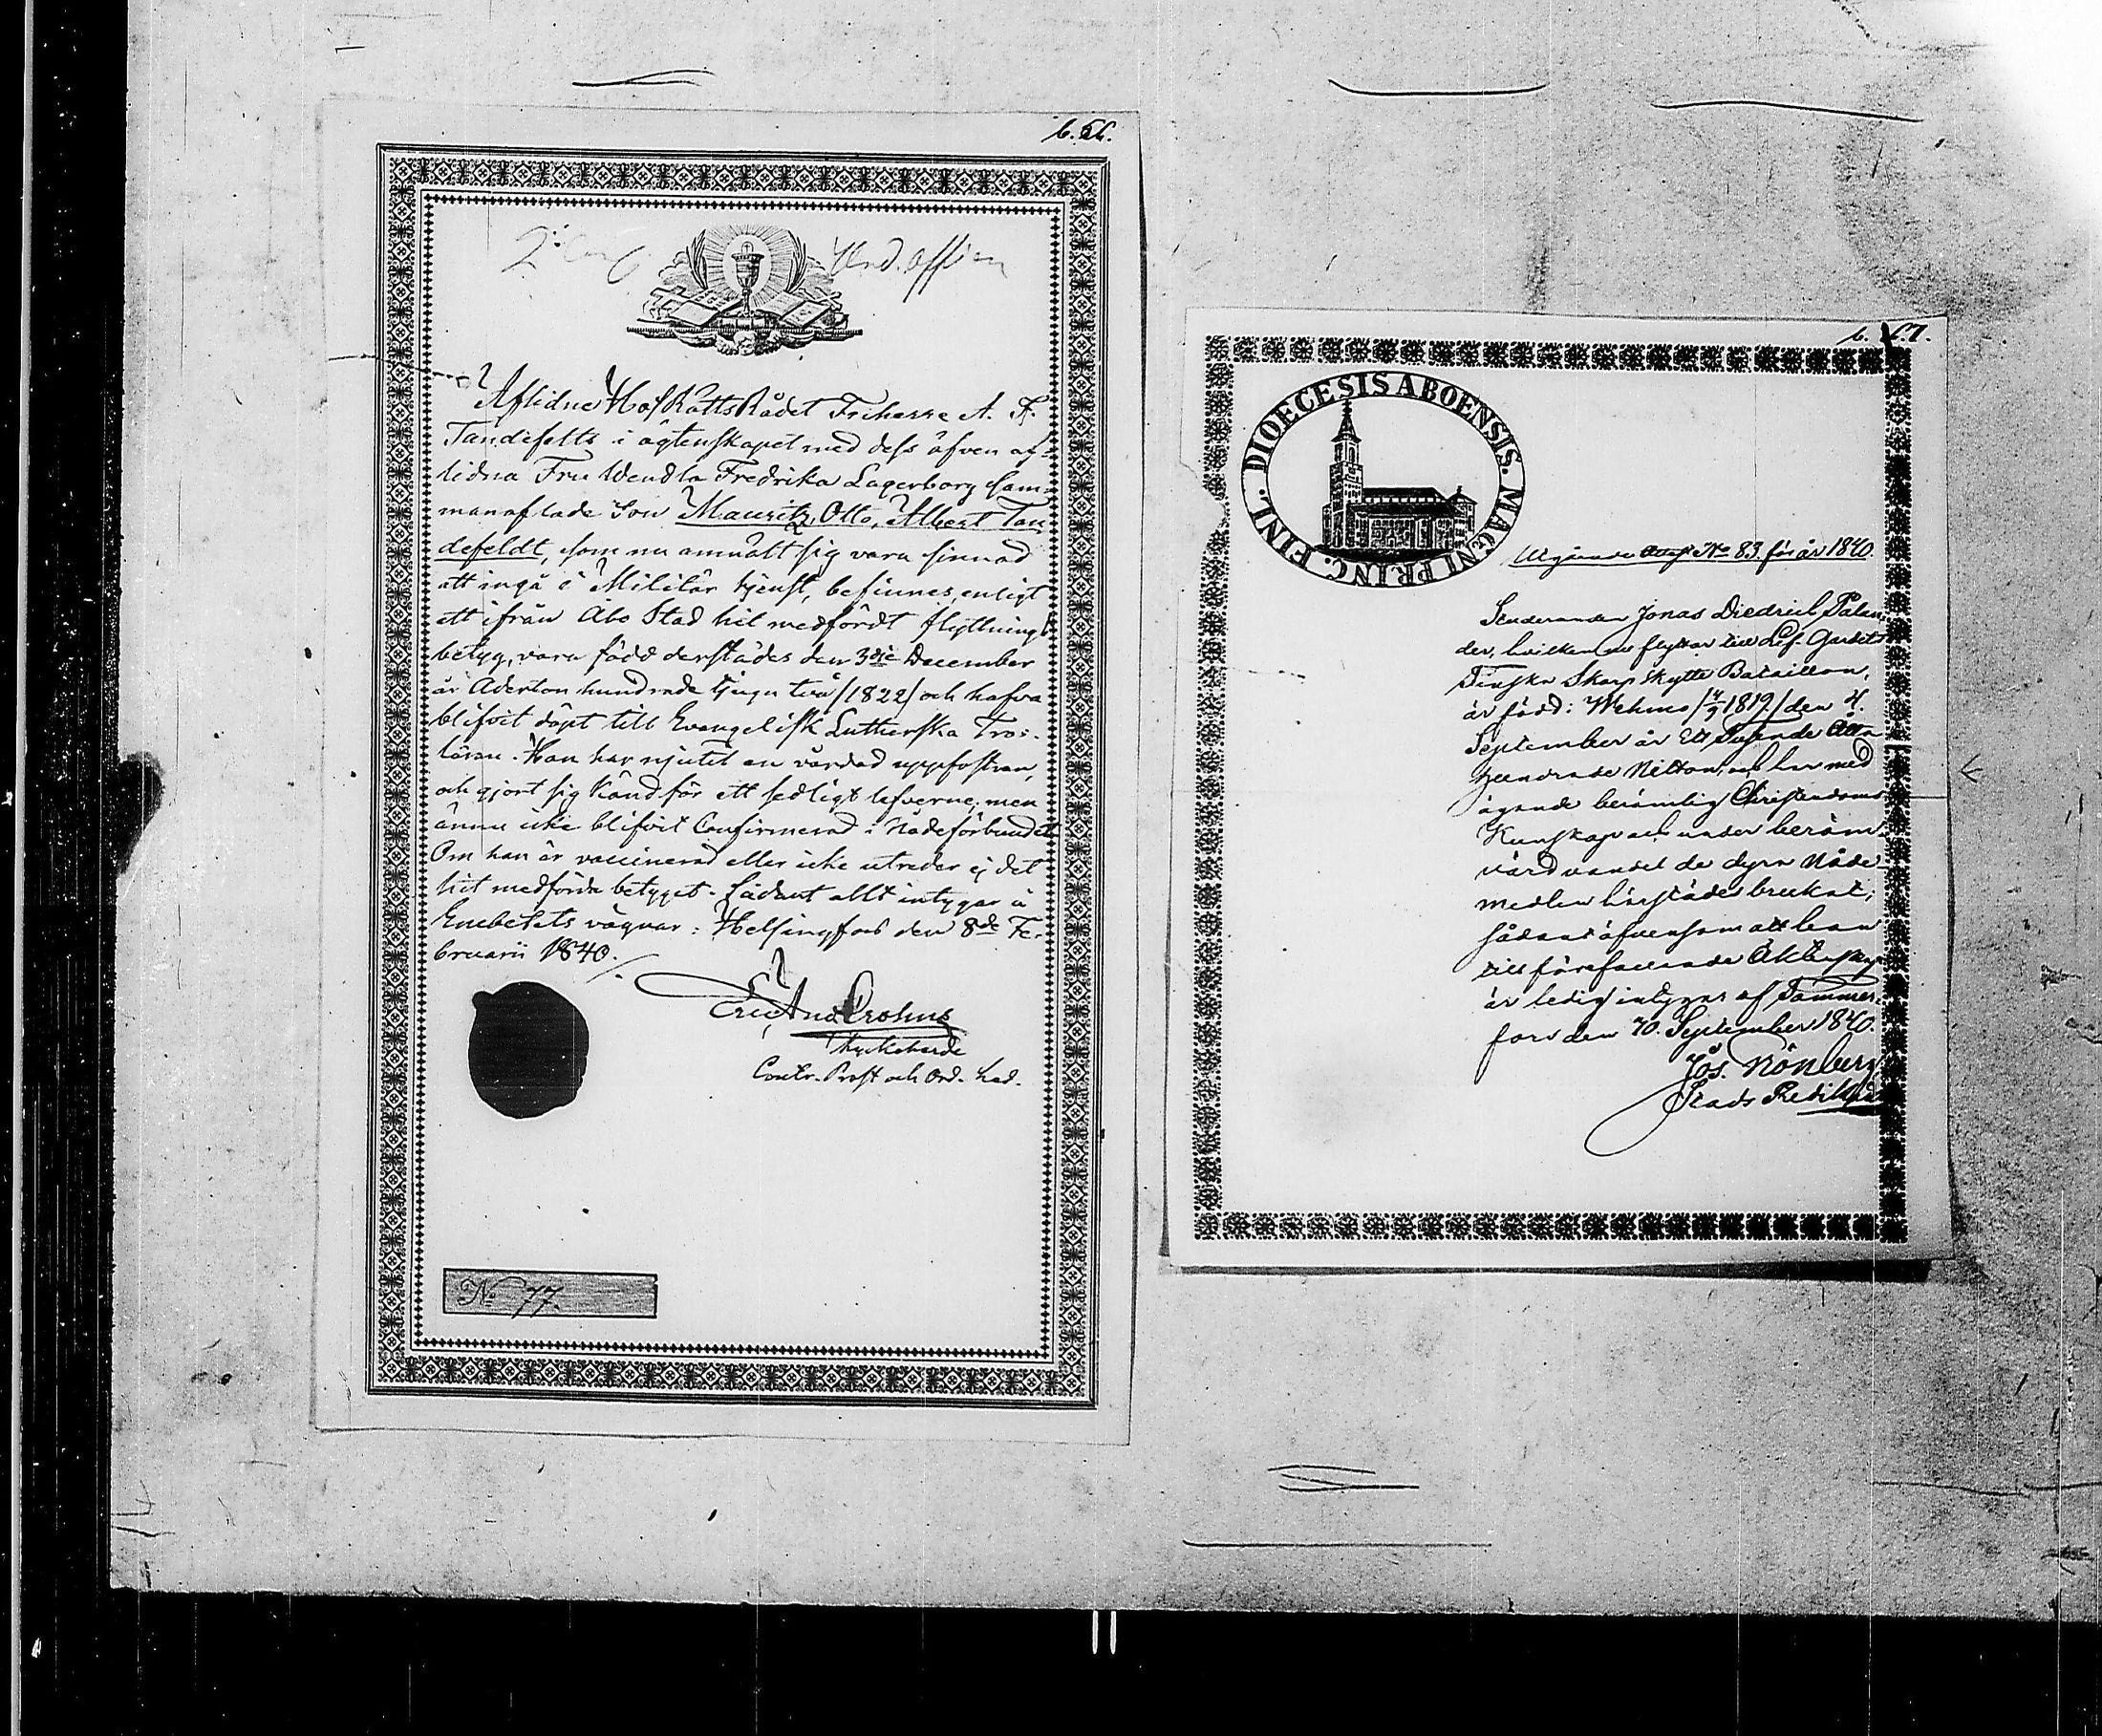 b. 56.
Und. offic
Aflidne HofRättsRådet Friherre A. F.
Tandefelts i ägtenskapet med dess äfven af-
lidna Fru Wendla Fredrika Lagerborg sam-
manaflade Son Mauritz, Otto, Albert Tan-
defeldt, som nu anmält sig vara sinnad
att ingå i Militär tjenst, befinnes, enligt
ett ifrån Åbo Stad hit medfördt flyttnings
betyg, vara född derstädes den 3die December
år Aderton hundrade tjugu två /1822/ och hafva
blifvit döpt till Evangelisk Lutherska Tros-
läran. Han har njutit en vårdad uppfostran,
och gjort sig känd för ett sedligt lefverne; men
ännu icke blifvit Confirmerad i Nådeförbundet
Om han är vaccinerad eller icke utreder ej det
hit medförda betyget. Sådant allt intygar å
Embetets vägnar: Helsingfors den 8de Fe-
bruarii 1840.
Eric And Crohns
Kyrkoherde
Contr. Prost och Ord. Led.
No 77.
b. 57.
DIOECESIS ABOENSIS. MAGNI PRINC. FINL.
Utgående Attest No 83. för år 1840.
Studeranden Jonas Diedrich Palan-
der, hvilken nu flyttar till Lif-Gardets
Finska Skarp skytte Bataillon,
är född: Wehmo /4/9 1819/ den 4.
September år Ett Tusende Åtta
hundrade Nitton, och har med
ägande berömlig Christendoms
Kunskap och under beröm-
värd vandel de dyra Nåde
medlen härstädes brukat;
sådant äfvensom att han
till förefallande Äktenskap
är ledig intygar af Tammer-
fors den 10. September 1840.
Jos. Mönberg
Stads Predikant